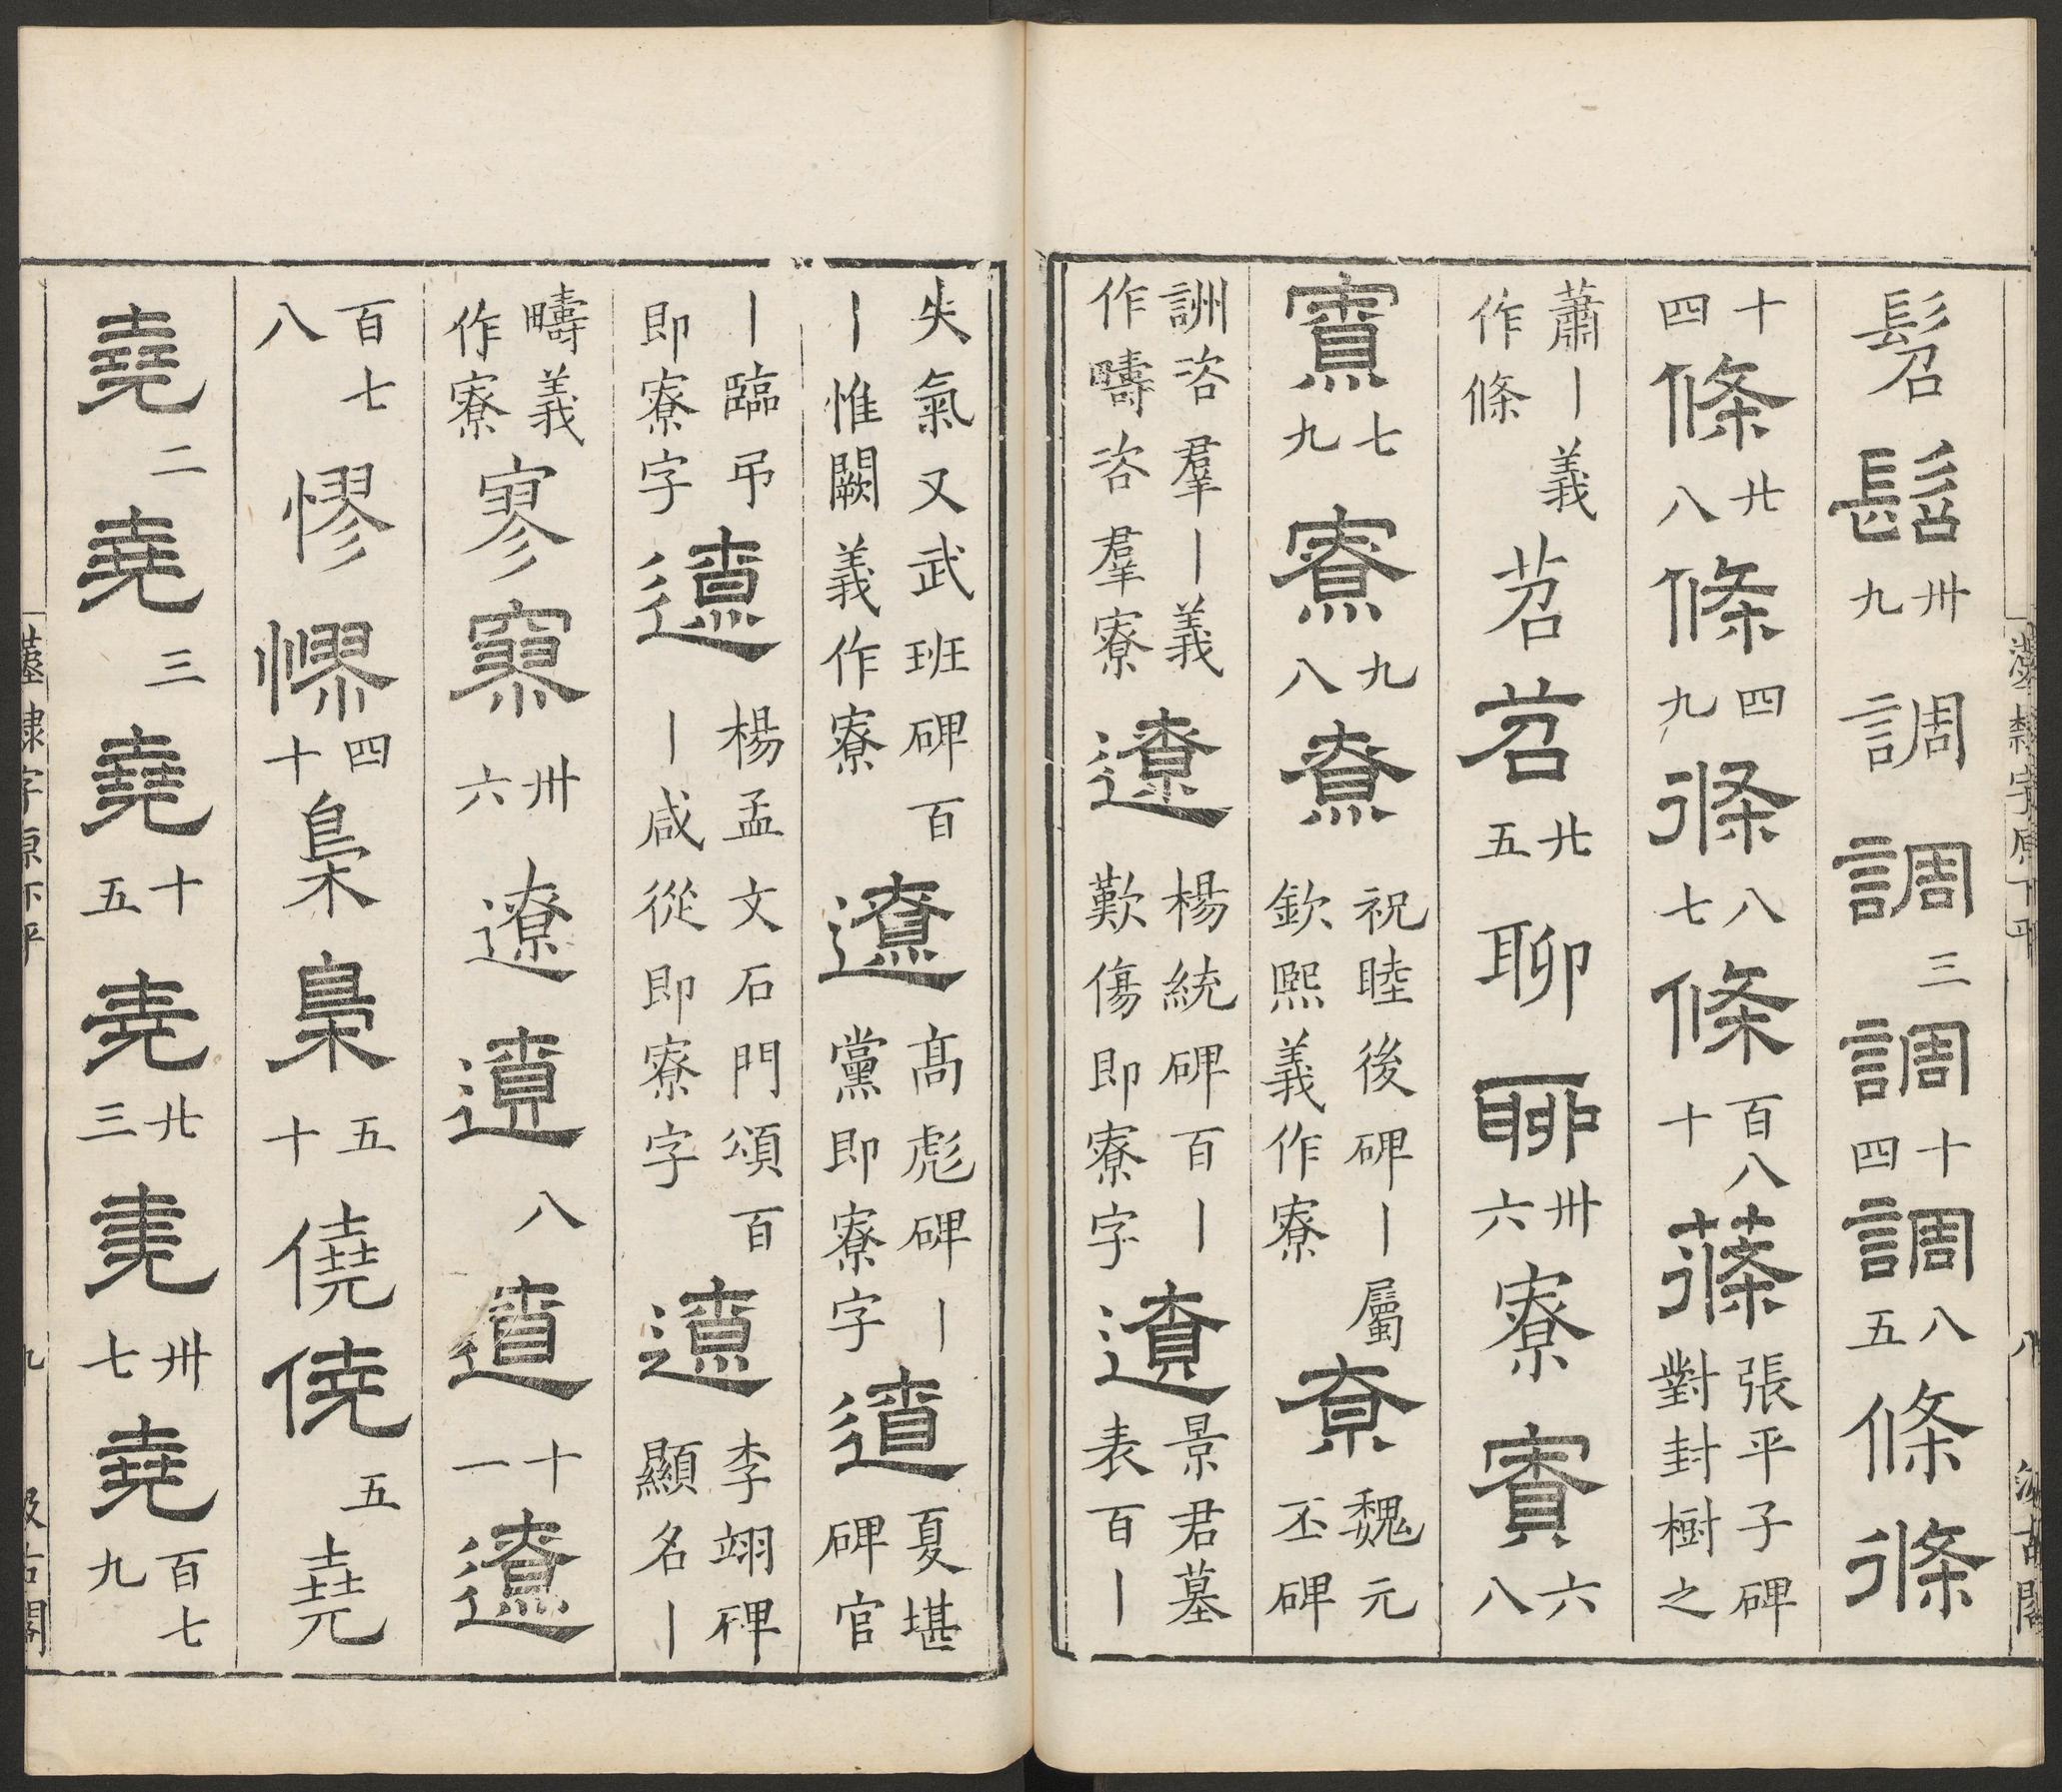 髫髫卅九調調三調十四調八五條條
十四條廿八條四九條八七條百八十蓧張平子碑對封樹之
蕭丨義作條苕苕廿五聊聊卅六寮寮六八
寮七九寮九八尞祝睦後碑丨屬欽熙義作寮尞魏元丕碑
詶咨羣丨義作疇咨羣寮遼楊統碑百丨歎傷即寮字遼景君墓表百丨
失氣又武班碑百丨惟闕義作寮遼高彪碑丨丨黨即寮字遼夏堪碑官
丨臨弔即寮字遼楊孟文石門頌百丨咸從即寮字遼李翊碑顯名丨
疇義作寮寥寥卅六遼遼八遼十一遼
百七八憀憀四十梟梟五十僥僥五堯
堯二堯三堯十五堯廿三堯卅七堯百七九
漢隸字原下平 八 汲古閣
漢隸字原下平 九 汲古閣